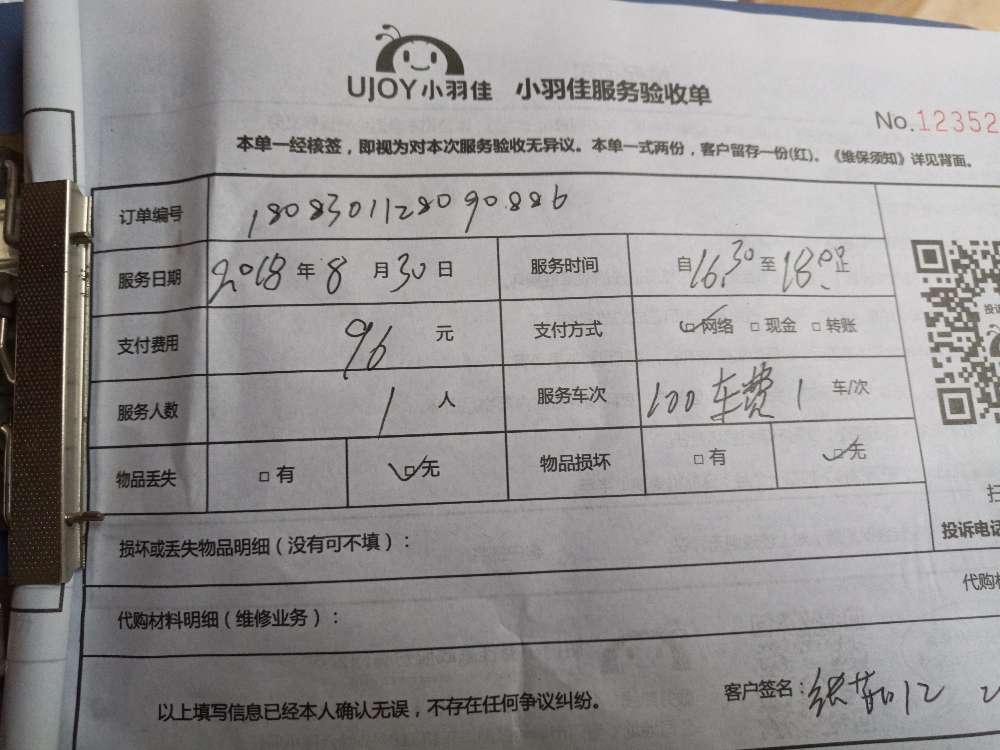 UJOY小羽佳 小羽佳服务验收单
No.12352
本单一经核签，即视为对本次服务验收无异议。本单一式两份，客户留存一份(红)。《维保须知》详见背面。
订单编号 180830112809088​6
服务日期 2018年8月30日 服务时间 自16:30至18:00止
支付费用 96元 支付方式 网络 现金 转账
服务人数 1人 服务车次 100车费1 车/次
物品丢失 有 无 物品损坏 有 无
损坏或丢失物品明细（没有可不填）：
投诉电话
代购材料明细（维修业务）：
代购
以上填写信息已经本人确认无误，不存在任何争议纠纷。
客户签名：